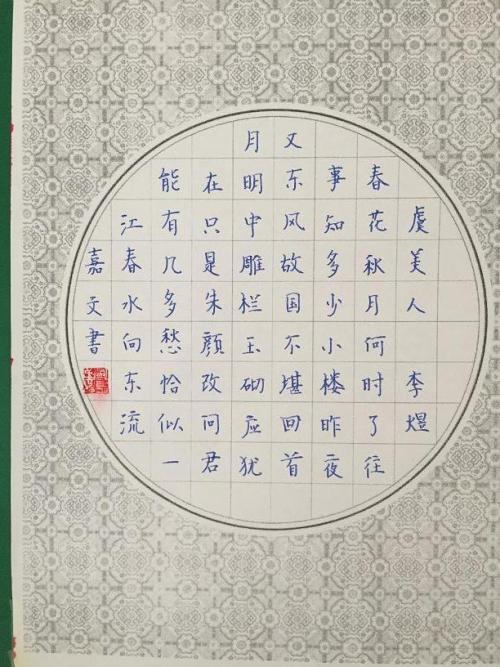 虞美人 李煜
春花秋月何时了往
事知多少小楼昨夜
又东风故国不堪回首
月明中雕栏玉砌应犹
在只是朱颜改问君
能有几多愁恰似一
江春水向东流
嘉文书